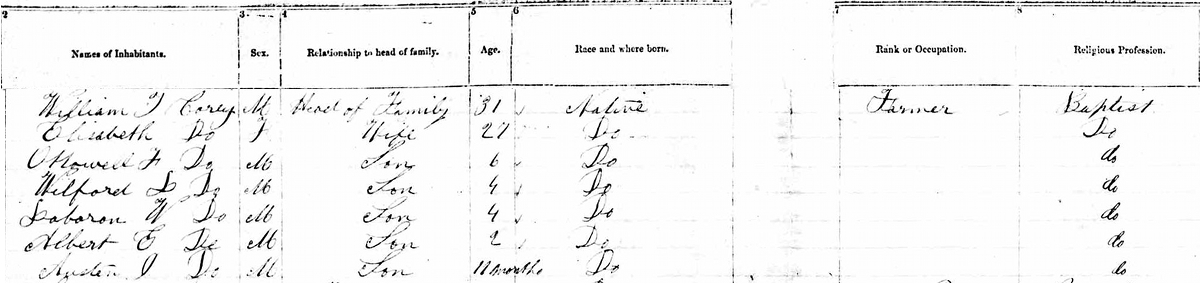 2 3 4 5 6 7 8
Names of Inhabitants. Sex. Relationship to head of family. Age. Race and where born. Rank or Occupation. Religious Profession.
William T Corey M Head of Family 31 Native Farmer Baptist
Elisabeth Do F Wife 27 Do Do
F Do M Son 6 Do do
Wilford D Do M Son 4 Do do
Laboron W Do M Son 4 Do do
Albert E Do M Son 2 Do do
Austen J Do M Son 11 months Do do